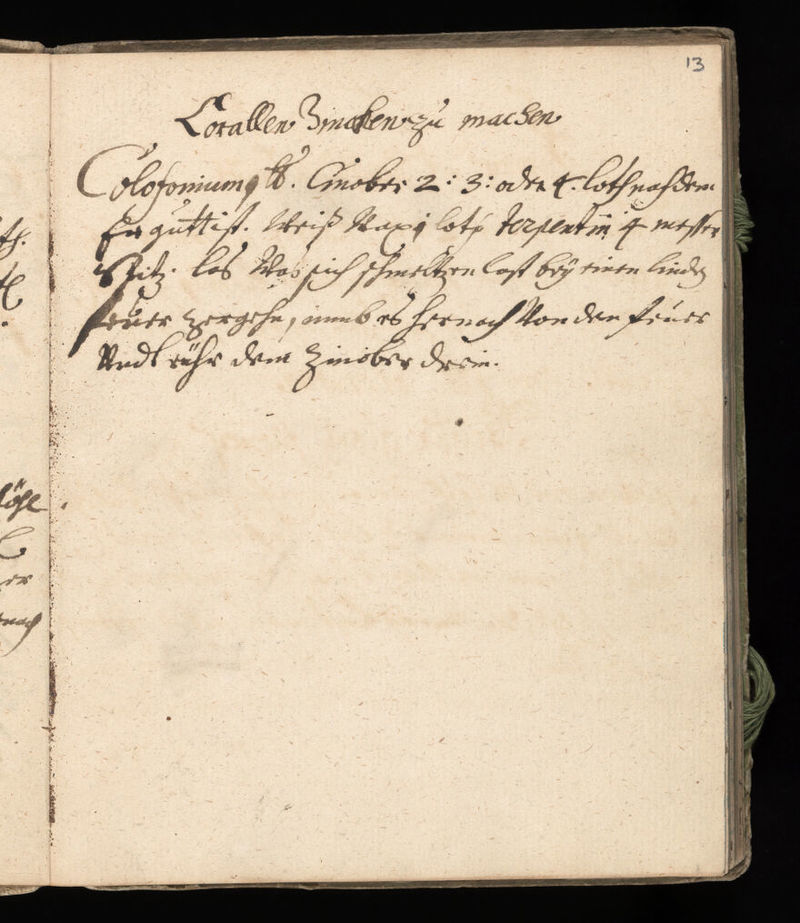 13
Corallen Zincken zu machen
Colofonium 1 ℔. Cinober 2: 3: oder 4. loth nach dem
Er gutt ist. Weiß Wax 1 loth terpentin 4 messer
Spitz. las sich schmeltzen last bey einen linden
feüer zergehn, nimb es hernach Von den feüer
Vndt rühr dem Zinober drein.
öhl
er
nach